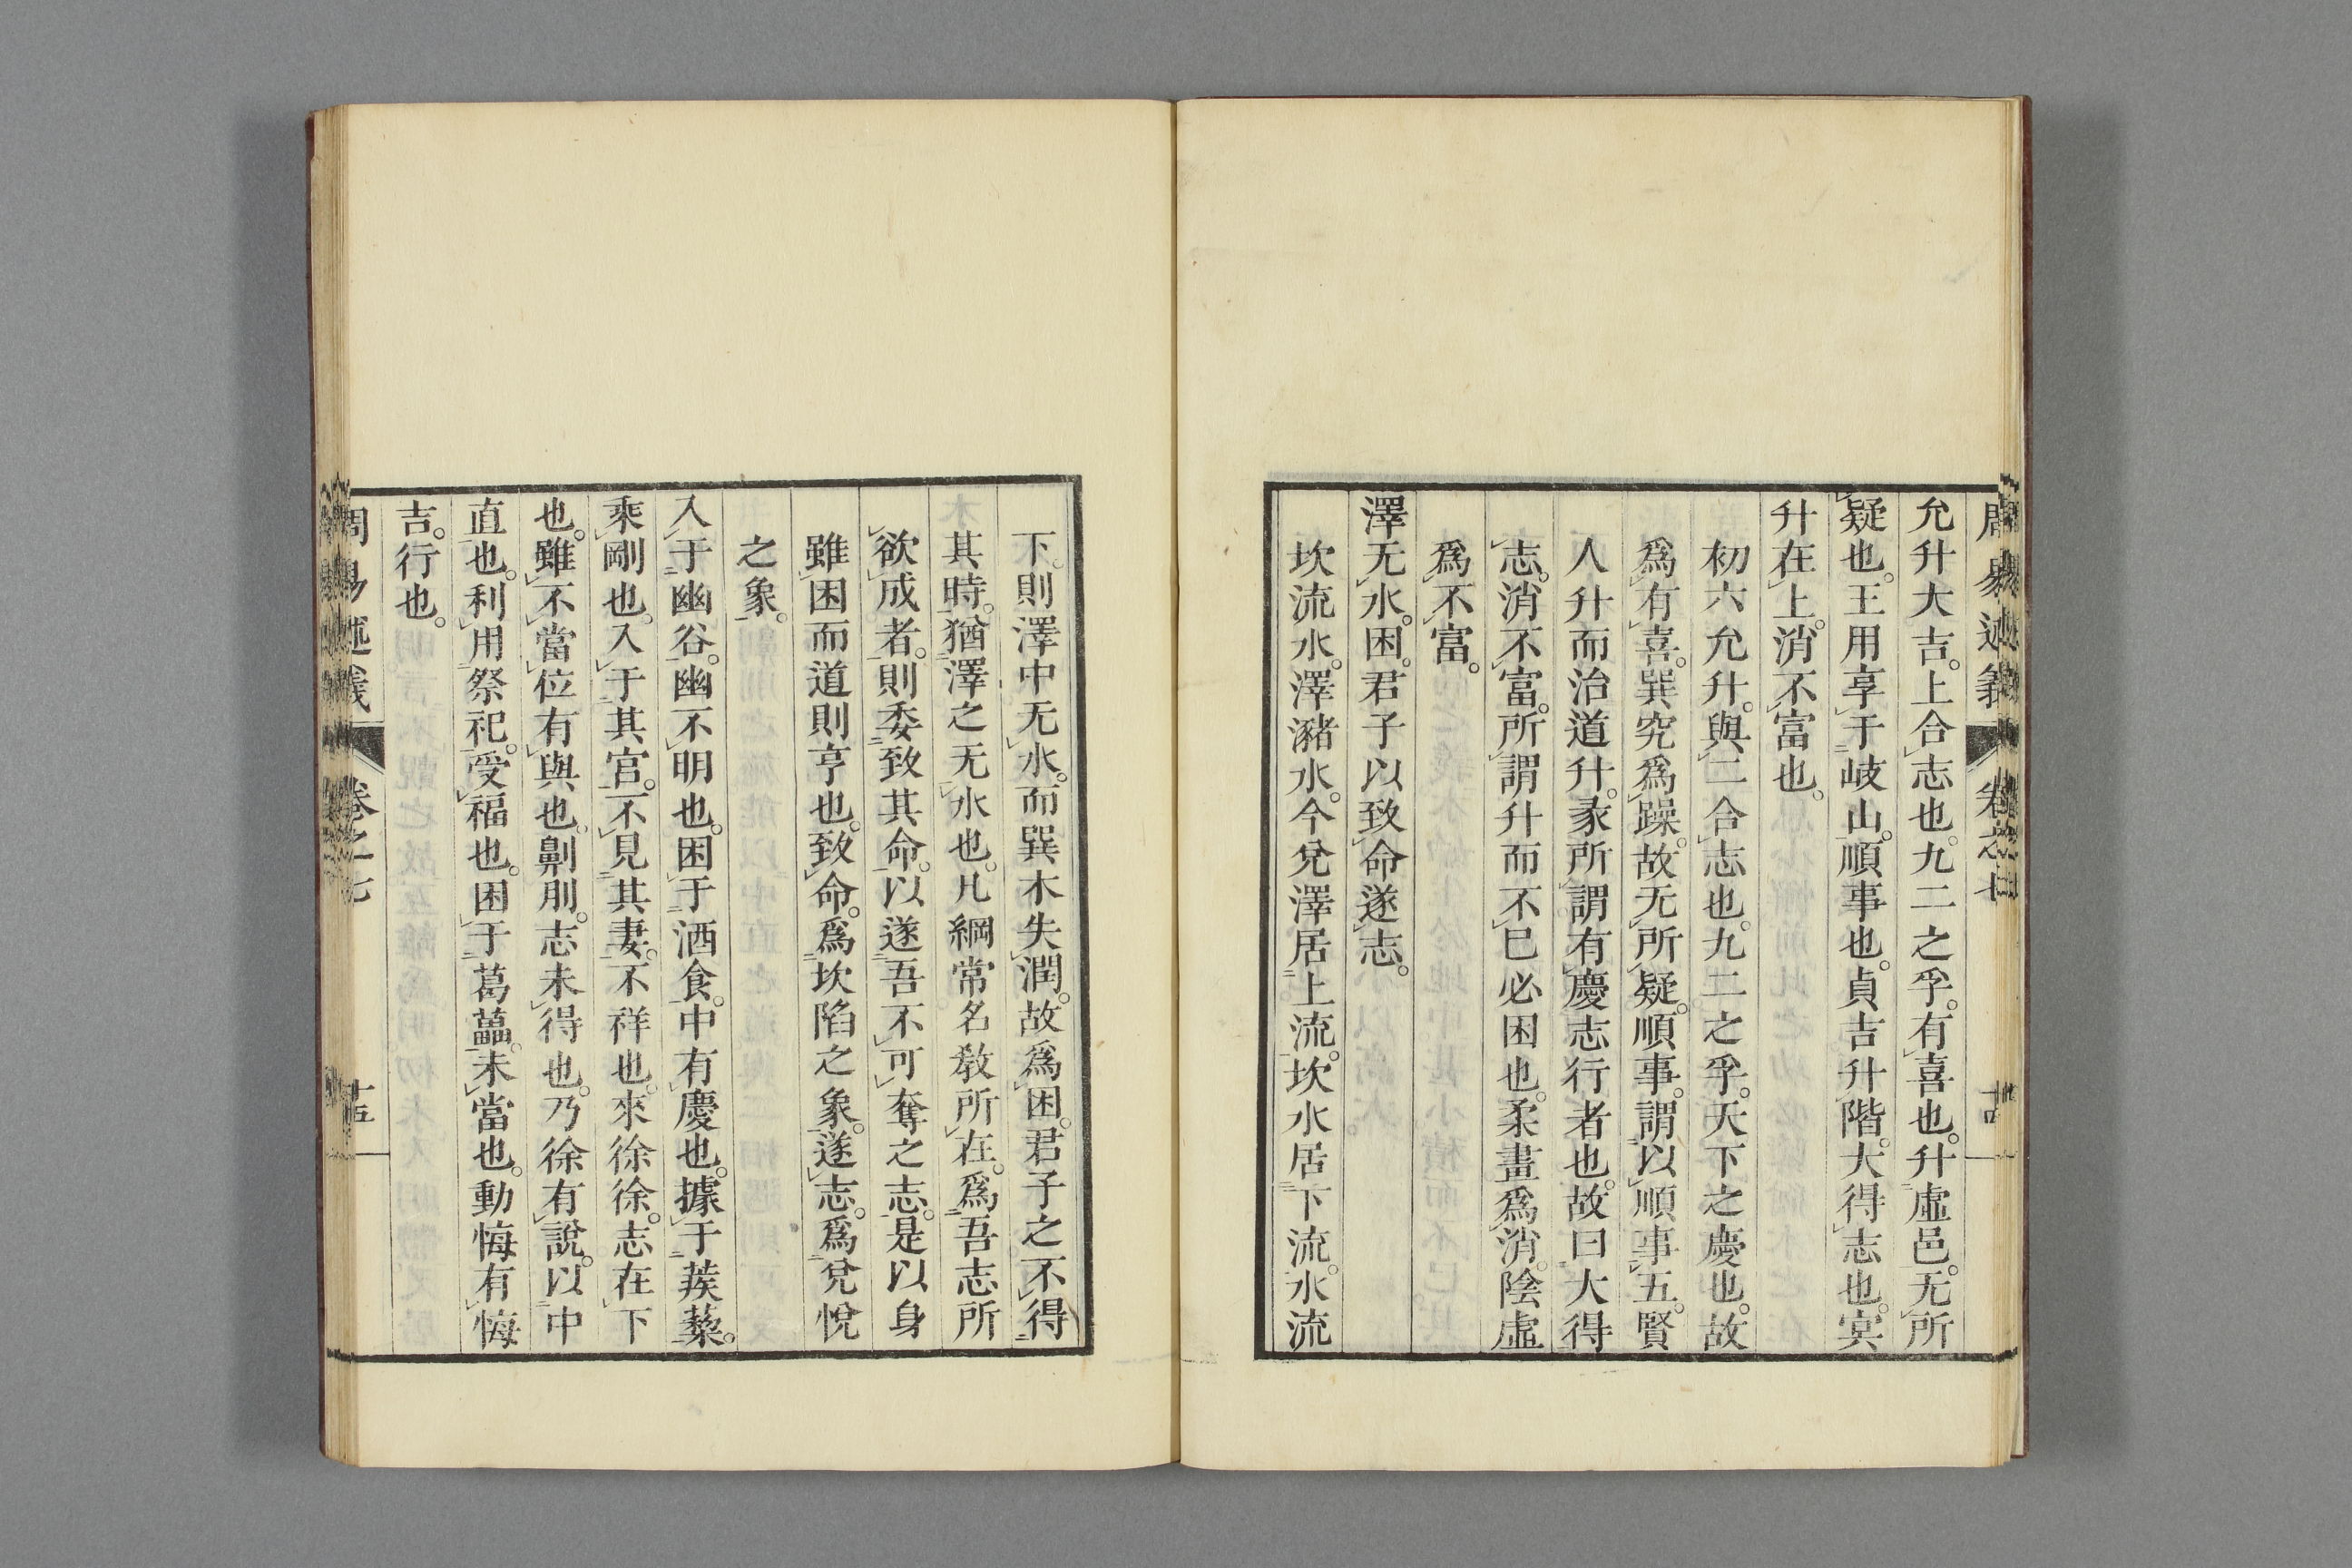 允升大吉。上合志也。九二之孚。有喜也。升虛邑。无所
疑也。王用享于岐山。順事也。貞吉升階。大得志也。冥
升在上。消不富也。
初六允升。與二合志也。九二之孚。天下之慶也。故
爲有喜。巽究爲躁。故无所疑。順事。謂以順事五。賢
人升而治道升。彖所謂有慶志行者也。故曰大得
志。消不富。所謂升而不已必困也。柔畫爲消。陰虛
爲不富。
澤无水。困。君子以致命遂志。
坎流水。澤瀦水。今兌澤居上流。坎水居下流。水流
下。則澤中无水。而巽木失潤。故爲困。君子之不得
其時。猶澤之无水也。凡綱常名敎所在。爲吾志所
欲成者。則委致其命。以遂吾不可奪之志。是以身
雖困而道則亨也。致命。爲坎陷之象。遂志。爲兌悅
之象。
入于幽谷。幽不明也。困于酒食。中有慶也。據于蒺蔾。
乘剛也。入于其宮。不見其妻。不祥也。來徐徐。志在下
也。雖不當位有與也。劓刖。志未得也。乃徐有說。以中
直也。利用祭祀。受福也。困于葛藟。未當也。動悔有悔
吉。行也。
周易述義
卷之七
十五